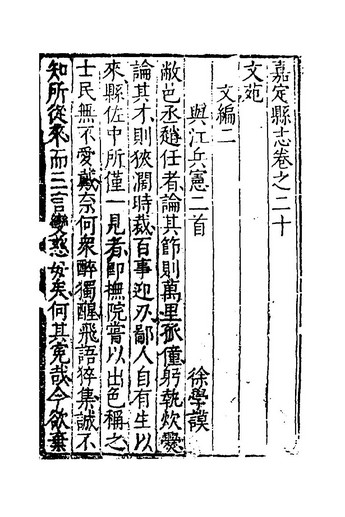 嘉定縣志卷之二十
文苑
文編二
與江兵憲二首 徐學謨
敝邑丞趙任者論其節則萬里孤僮躬執炊爨
論其才則狹濶時裁百事迎刃鄙人自有生以
來縣佐中所僅一見者即撫院嘗以出色稱之
士民無不愛戴奈何衆醉獨醒飛語猝集誠不
知所從來而三言變惑女矣何其寃哉今欲棄